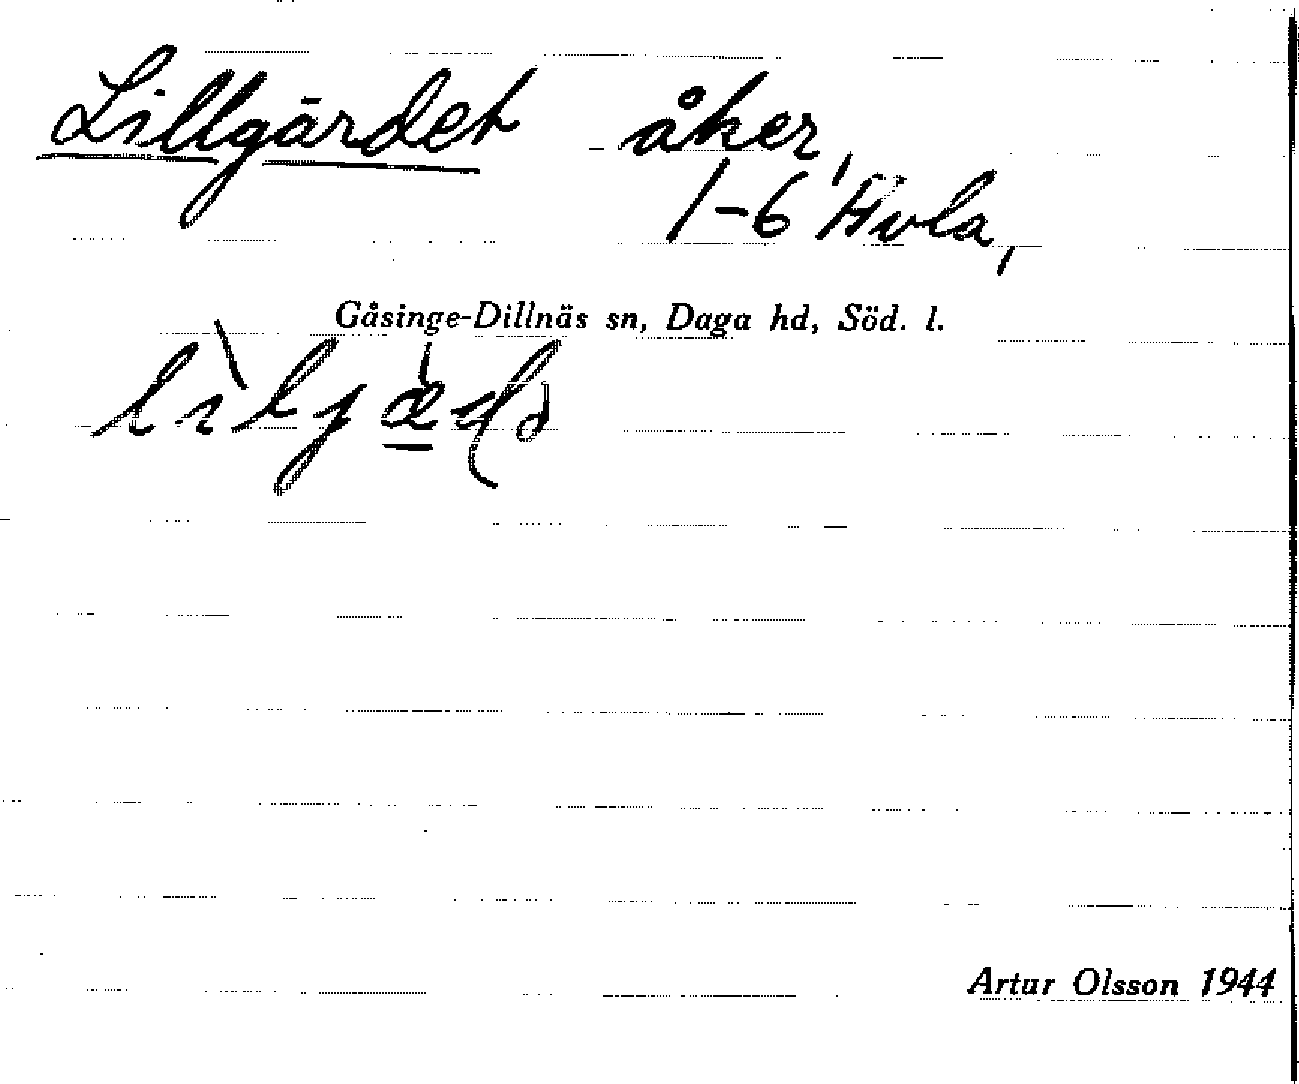 Lillgärdet åker,
1-6 Hvla,
Gåsinge-Dillnäs sn, Daga hd, Söd. l.
Artur Olsson 1944